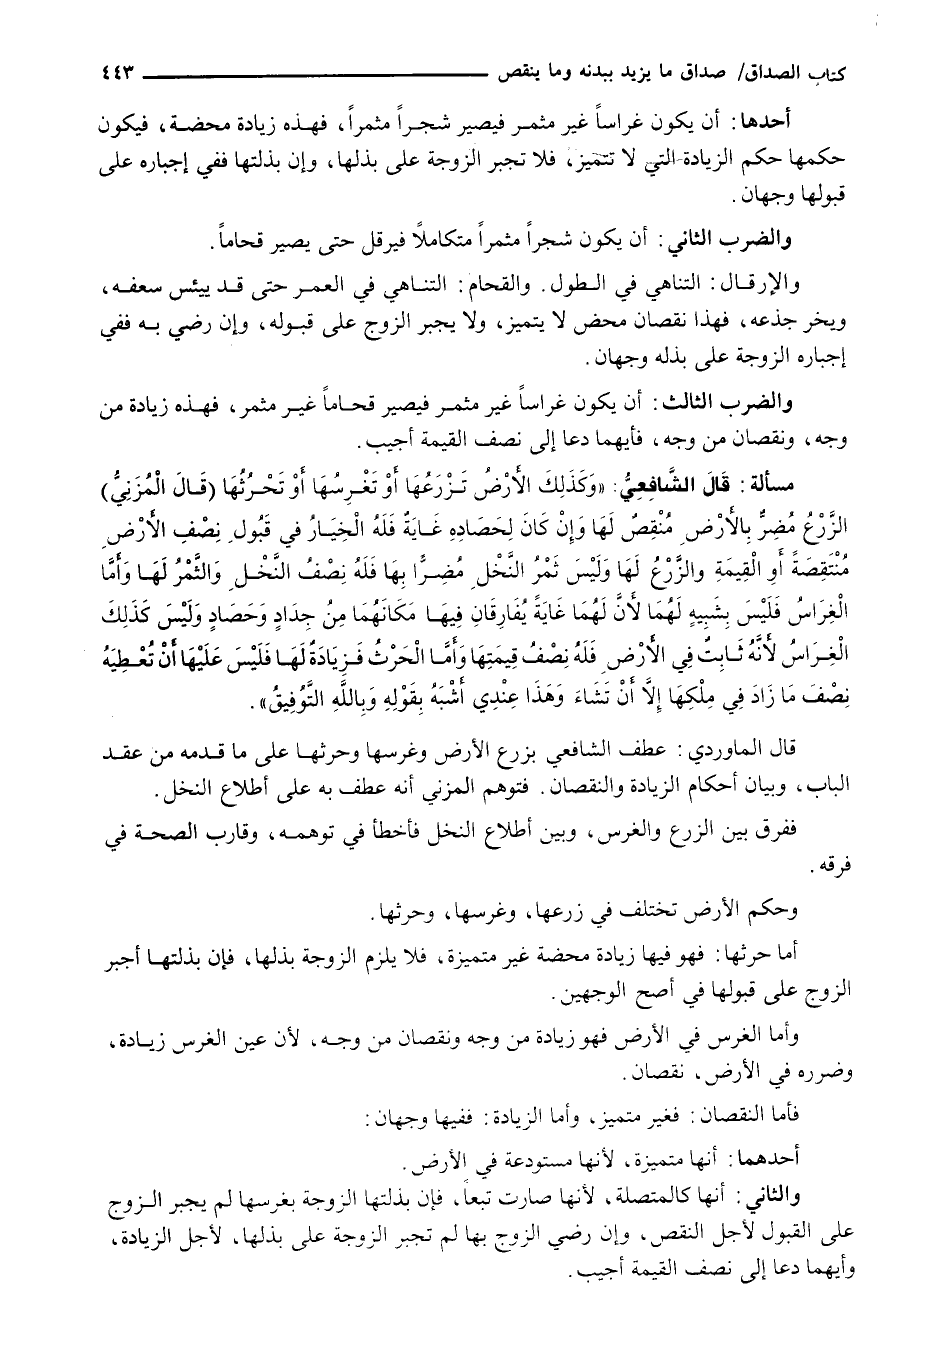 كتاب الصداق/ صداق ما يزيد ببدنه وما ينقص ــــــــــــــــــ ٤٤٣
أحدها: أن يكون غراساً غير مثمر فيصير شجراً مثمراً، فهذه زيادة محضة، فيكون
حكمها حكم الزيادة التي لا تتميز، فلا تجبر الزوجة على بذلها، وإن بذلتها ففي إجباره على
قبولها وجهان.
والضرب الثاني: أن يكون شجراً مثمراً متكاملاً فيرقل حتى يصير قحاماً.
والإرقال: التناهي في الطول. والقحام: التناهي في العمر حتى قد ييئس سعفه،
ويخر جذعه، فهذا نقصان محض لا يتميز، ولا يجبر الزوج على قبوله، وإن رضي به ففي
إجباره الزوجة على بذله وجهان.
والضرب الثالث: أن يكون غراساً غير مثمر فيصير قحاماً غير مثمر، فهذه زيادة من
وجه، ونقصان من وجه، فأيهما دعا إلى نصف القيمة أجيب.
مسألة: قَالَ الشَّافِعِيُّ: «وَكَذَلِكَ الأَرْضُ تَزْرَعُهَا أَوْ تَغْرِسُهَا أَوْ تَحْرُثُهَا (قَالَ الْمُزَنِيُّ)
الزَّرْعُ مُضِرٌّ بِالأَرْضِ مُنْقِصٌ لَهَا وَإِنْ كَانَ لِحَصَادِهِ غَايَةٌ فَلَهُ الْخِيَارُ في قَبُولِ نِصْفِ الأَرْضِ
مُنْتَقِصَةً أَوِ الْقِيمَةِ والزَّرْعُ لَهَا وَلَيْسَ ثَمْرُ النَّخْلِ مُضِرًّا بِهَا فَلَهُ نِصْفُ النَّخْلِ وَالثَّمْرُ لَهَا وَأَمَّا
الْغِرَاسُ فَلَيْسَ بِشَبِيهٍ لَهُمَا لأَنَّ لَهُمَا غَايَةً يُفَارِقَانِ فِيهَا مَكَانَهُمَا مِنْ جِدَادٍ وَحَصَادٍ وَلَيْسَ كَذَلِكَ
الْغِرَاسُ لأَنَّهُ ثَابِتٌ فِي الأَرْضِ فَلَهُ نِصْفُ قِيمَتِهَا وَأَمَّا الْحَرْثُ فَزِيَادَةٌ لَهَا فَلَيْسَ عَلَيْهَا أَنْ تُعْطِيَهُ
نِصْفَ مَا زَادَ فِي مِلْكِهَا إِلاَّ أَنْ تَشَاءَ وَهَذَا عِنْدِي أَشْبَهُ بِقَوْلِهِ وَبِاللَّهِ التَّوْفِيقُ».
قال الماوردي: عطف الشافعي بزرع الأرض وغرسها وحرثها على ما قدمه من عقد
الباب، وبيان أحكام الزيادة والنقصان. فتوهم المزني أنه عطف به على أطلاع النخل.
ففرق بين الزرع والغرس، وبين أطلاع النخل فأخطأ في توهمه، وقارب الصحة في
فرقه.
وحكم الأرض تختلف في زرعها، وغرسها، وحرثها.
أما حرثها: فهو فيها زيادة محضة غير متميزة، فلا يلزم الزوجة بذلها، فإن بذلتها أجبر
الزوج على قبولها في أصح الوجهين.
وأما الغرس في الأرض فهو زيادة من وجه ونقصان من وجه، لأن عين الغرس زيادة،
وضرره في الأرض، نقصان.
فأما النقصان: فغير متميز، وأما الزيادة: ففيها وجهان:
أحدهما: أنها متميزة، لأنها مستودعة في الأرض.
والثاني: أنها كالمتصلة، لأنها صارت تبعاً، فإن بذلتها الزوجة بغرسها لم يجبر الزوج
على القبول لأجل النقص، وإن رضي الزوج بها لم تجبر الزوجة على بذلها، لأجل الزيادة،
وأيهما دعا إلى نصف القيمة أجيب.